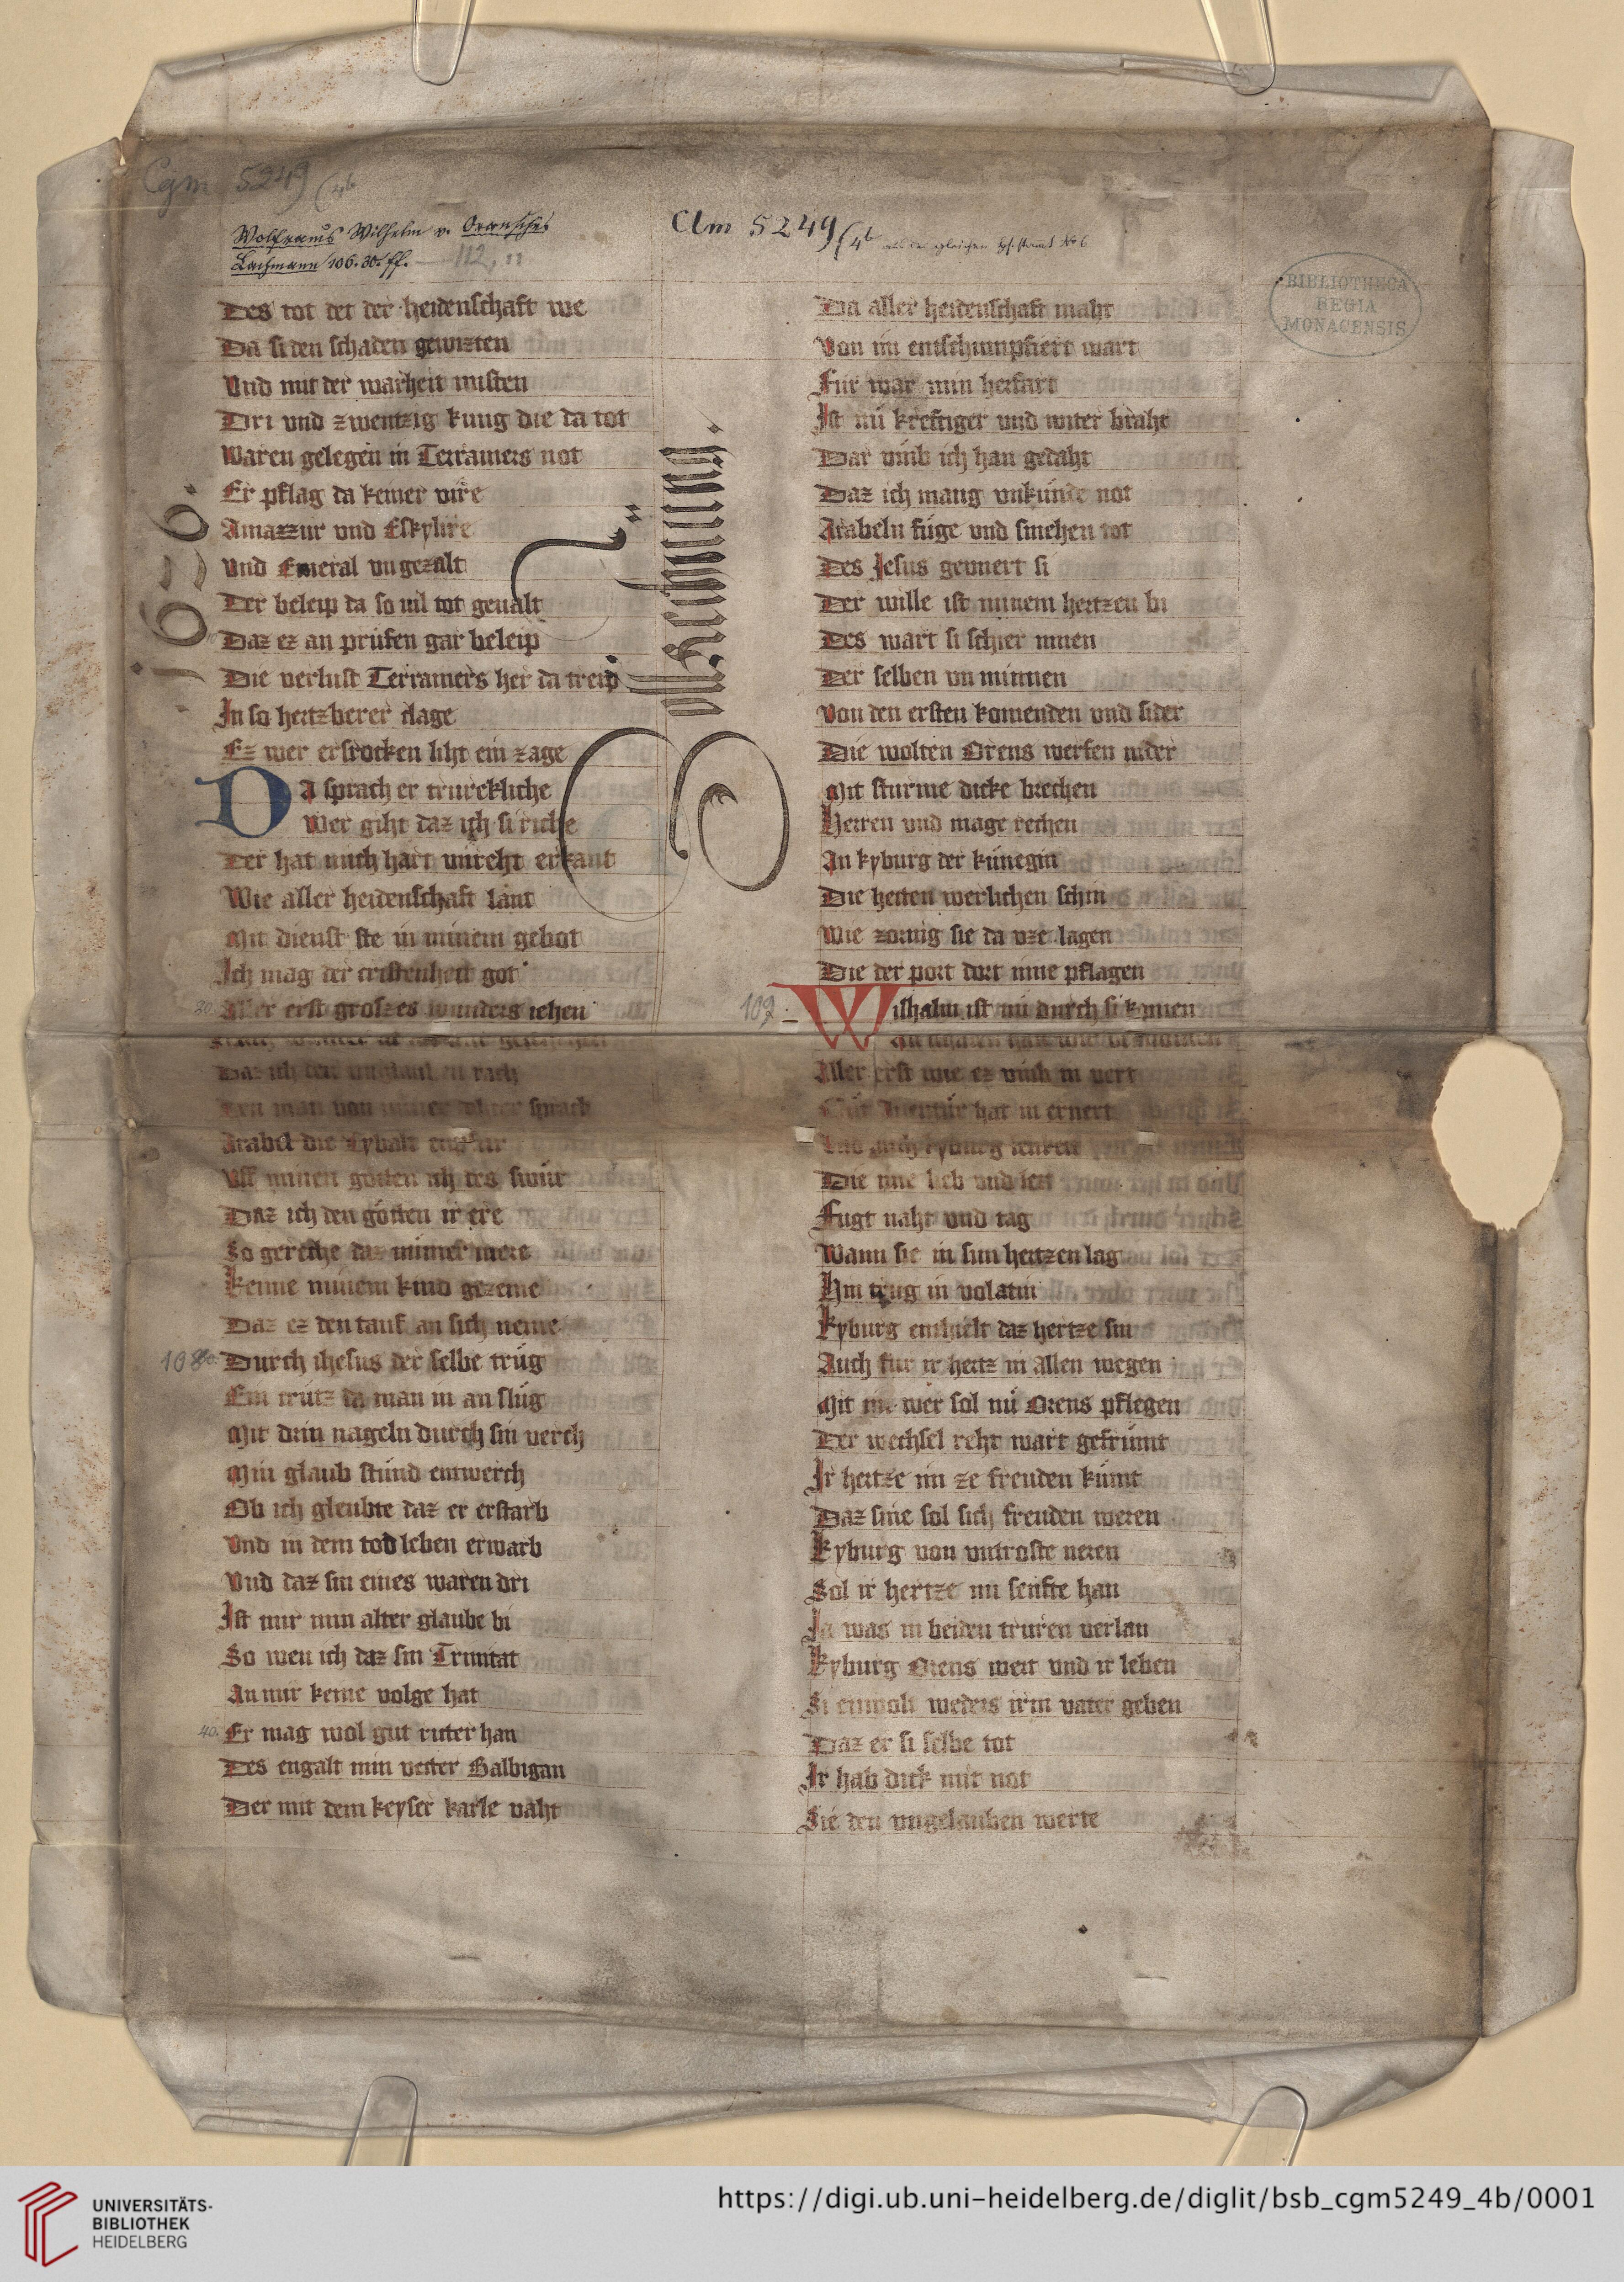 Cgm 5249 (4b
Wolframs Wilhelm v. Oransches
Lachmann 106.30. ff. — 112, 11
Clm 5249 (4b aus der gleichen No 6
BIBLIOTHECA
REGIA
MONACENSIS
1696.
Rechnung.
Des tot det der heidenschaft we
Da si den schaden gewizten
Vnd mit der warheit misten
Dri vnd zwentzig kung die da tot
Waren gelegen in Terramers not
Er pflag da keiner vire
Amazzur vnd Eskylire
Vnd Emeral vngezalt
Der beleip da so uil tot geualt
Daz ez an prüfen gar beleip
Die verlust Terramers her da treip
In so hertzberer clage
Ez wer ersrocken liht ein zage
DA sprach er trureckliche
Wer giht daz ich si riche
Der hat mich hart vnreht erkant
Wie aller heidenschaft lant
Mit dienst ste in minem gebot
Ich mag der cristenheit got
30. Aller erst groszes wunders iehen
Daz ich den rach
Den man von miner sprach
Arabel die Tybalt
Vff minen götten ich des swür
Daz ich den götten ir ere
So gereche daz nimer mere
Keine minem kind gezeme
Daz ez den tauf an sich neme
108 Durch ihesus der selbe trüg
Ein crütz da man in an slüg
Mit drin nageln durch sin verch
Min glaub stünd entwerch
Ob ich gleubte daz er erstarb
Vnd in dem tod leben erwarb
Vnd daz sin eines waren dri
Ist mir min alter glaube bi
So wen ich daz sin Trinitat
An mir keine volge hat
40. Er mag wol gut ritter han
Des engalt min vetter Balbigan
Der mit dem keyser karle vaht
Da aller heidenschaft maht
Von im entschumpfiert wart
Für war min herfart
Ist nü kreftiger vnd witer braht
Dar vmb ich han gedaht
Daz ich mang vnkünde not
Arabeln füge vnd smehen tot
Des Jesus geunert si
Der wille ist minem hertzen bi
Des wart si schier innen
Der selben vnminnen
Von den ersten komenden vnd sider
Die wolten Orens werfen nider
Mit sturme dicke brechen
Herren vnd mage rechen
An kyburg der künegin
Die heten werlichen schin
Wie zornig sie da vze lagen
Die der port dort inne pflagen
109. Wilhalm ist nü durch si komen
Aller erst wie ez vmb in vert
Güt Auentür hat in ernert
Vnd auch kyburg
Die ime lieb vnd leit
Fugt naht vnd tag
Wann sie in sim hertzen lag
Im trug in volatin
Kyburg enthielt daz hertze sin
Auch für ir hertz in allen wegen
Mit im wer sol nü Orens pflegen
Der wechsel reht wart gefrümt
Ir hertze im ze freuden kümt
Daz sine sol sich freuden weren
Kyburg von vntroste neren
Sol ir hertze im senfte han
Ia was in beiden truren verlan
Kyburg Orens wert vnd ir leben
Si enwolt weders irm vater geben
Daz er si selbe tot
Ir hab dick mit not
Sie den vngelauben werte
UNIVERSITÄTS-
BIBLIOTHEK
HEIDELBERG
https://digi.ub.uni-heidelberg.de/diglit/bsb_cgm5249_4b/0001